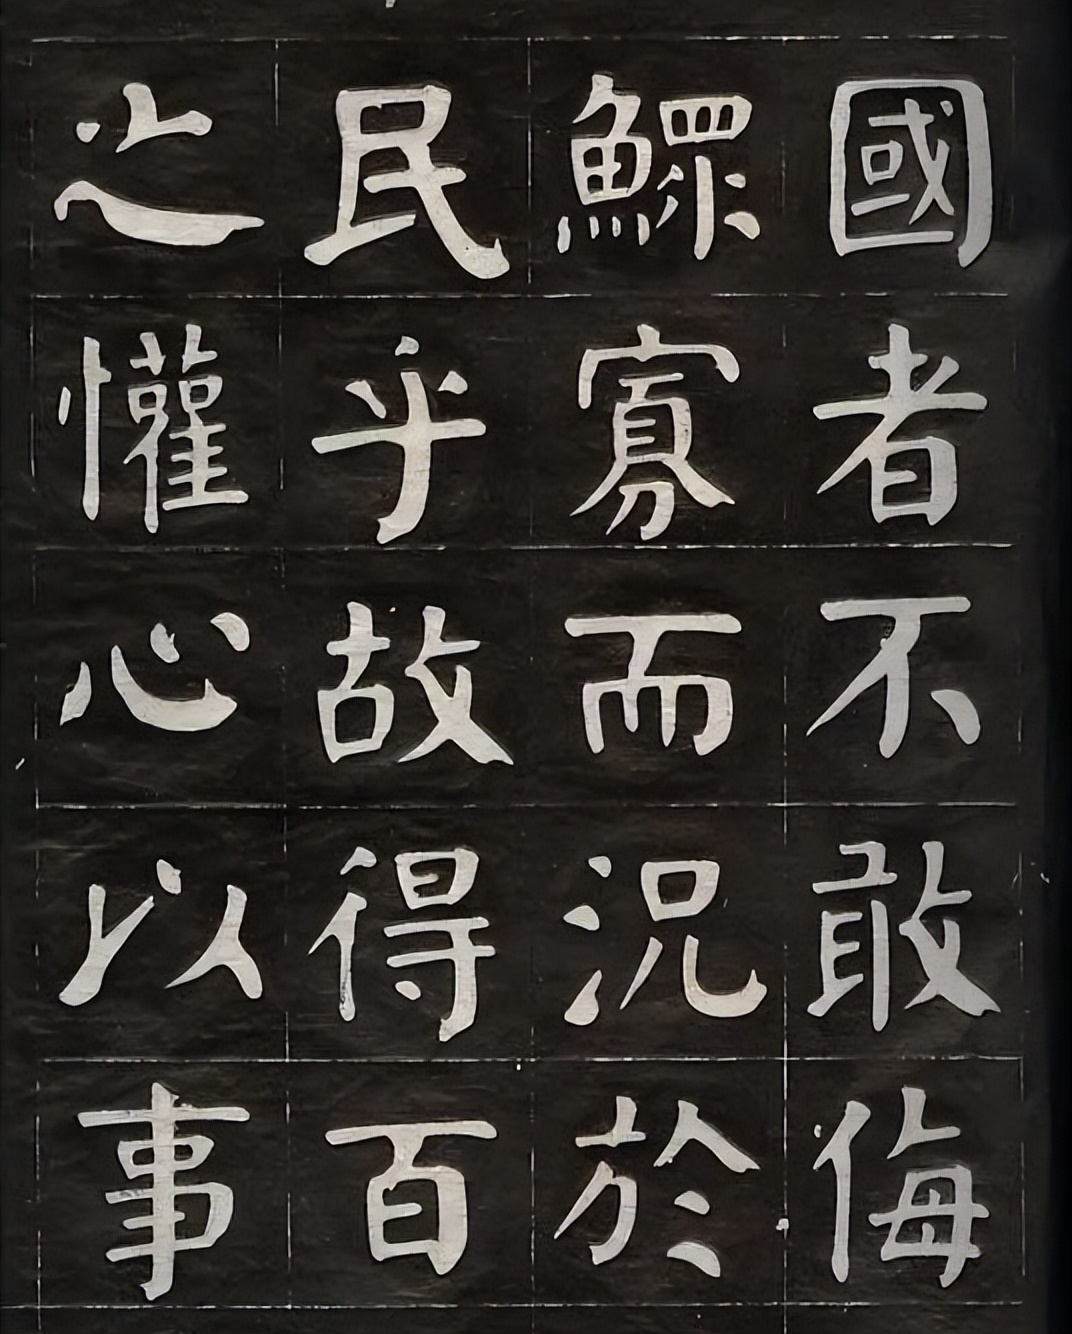 國者不敢侮
鰥寡而況於
民乎故得百
之懽心以事